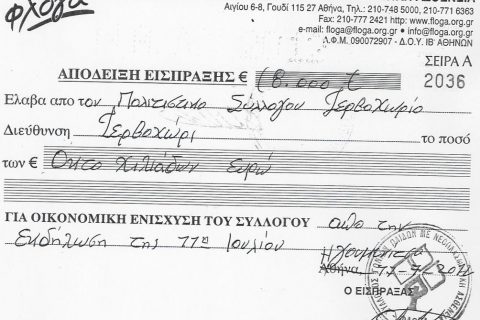 φλόγα
Αιγίου 6-8, Γουδί 115 27 Αθήνα, Τηλ.: 210-748 5000, 210-771 6363
Fax: 210-777 2421 http://www.floga.org.gr
e-mail: floga@floga.org.gr • info@floga.org.gr
Α.Φ.Μ. 090072907 - Δ.Ο.Υ. ΙΒ' ΑΘΗΝΩΝ
ΣΕΙΡΑ Α
ΑΠΟΔΕΙΞΗ ΕΙΣΠΡΑΞΗΣ € (8.000 € 2036
Ελαβα απο τον Πολιτιστικο Σύλλογου Ζερβοχωρίο
Διεύθυνση Ζερβοχώρι το ποσό
των € Οκτο Χιλιάδων Ευρώ
ΓΙΑ ΟΙΚΟΝΟΜΙΚΗ ΕΝΙΣΧΥΣΗ ΤΟΥ ΣΥΛΛΟΓΟΥ απο την
Εκδήλωση της 11ης Ιουλίου
Αθήνα,
Ο ΕΙΣΠΡΑΞΑΣ